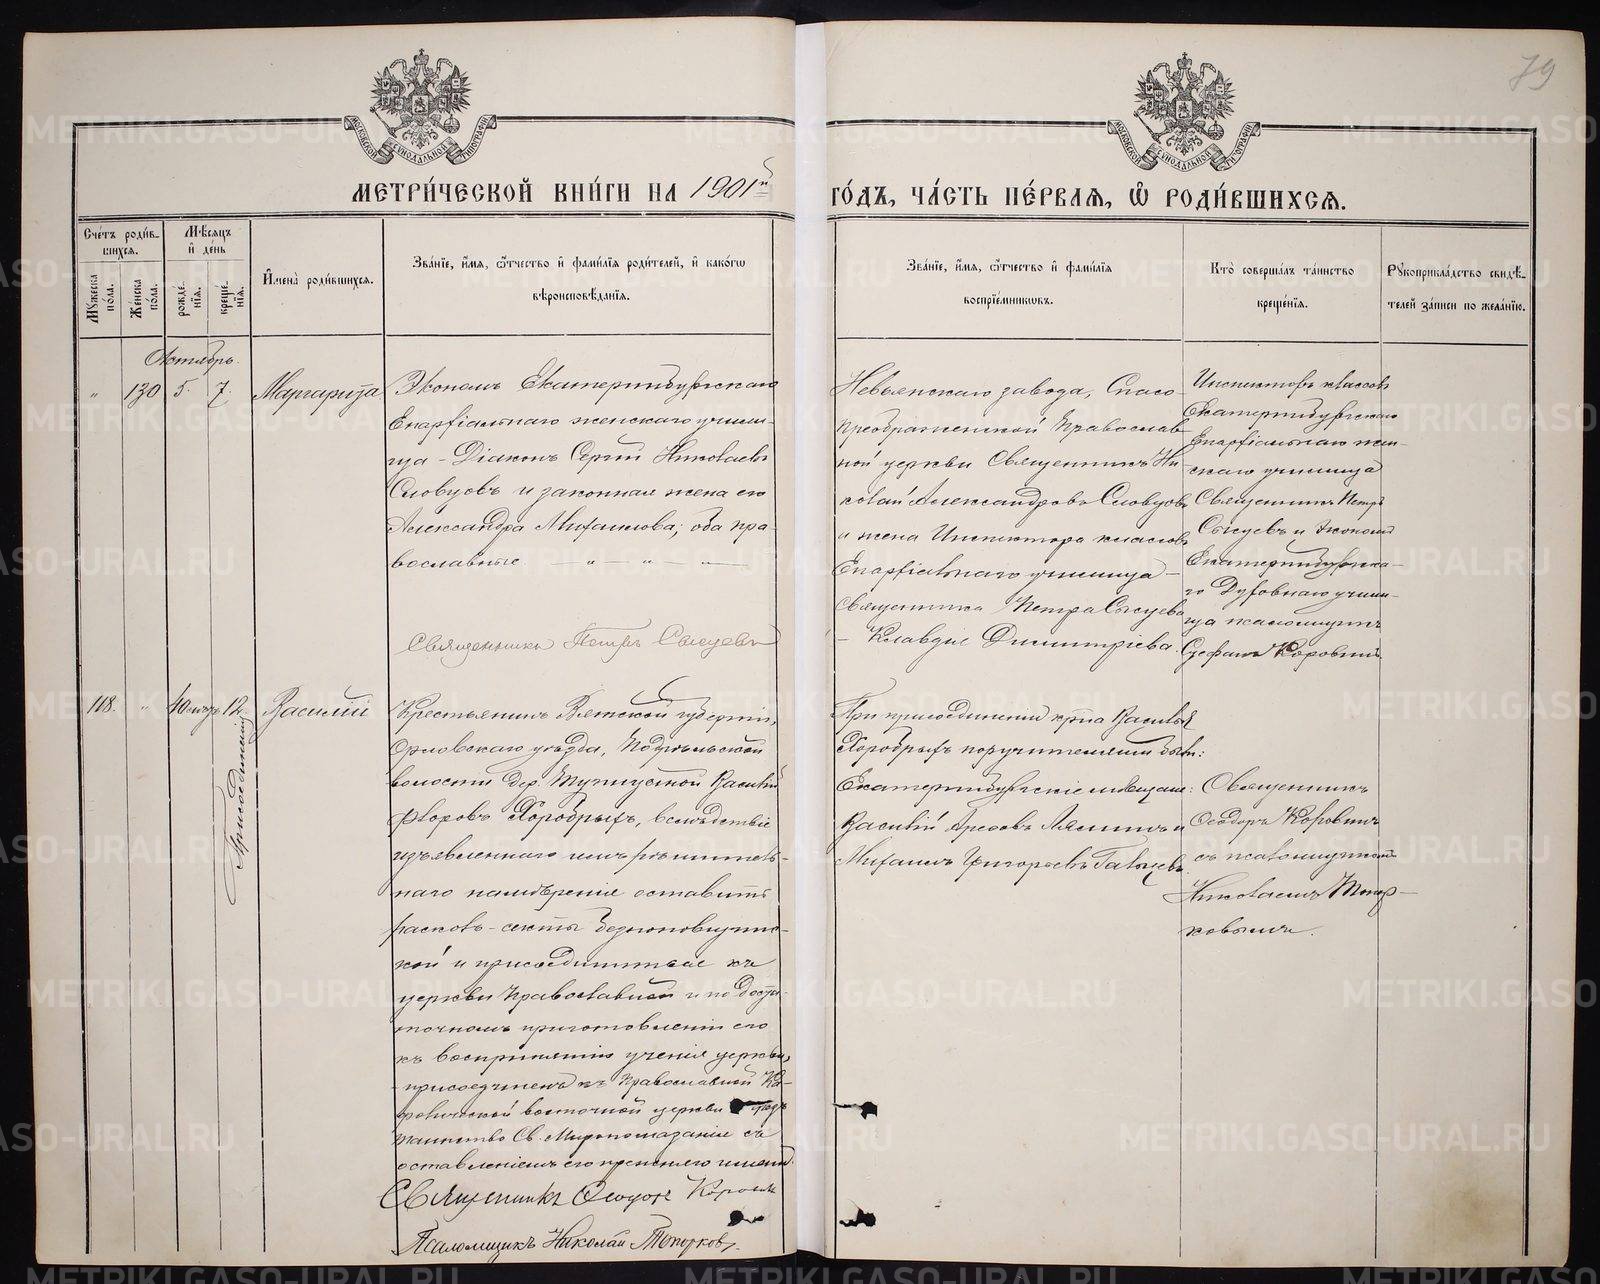 79
МОСКОВСКОЙ СѴНОДАЛЬНОЙ ТИПОГРАФИИ
МОСКОВСКОЙ СѴНОДАЛЬНОЙ ТИПОГРАФИИ
МЕТРИ́ЧЕСКОЙ КНИ́ГИ НА 1901й ГО́ДЪ, ЧА́СТЬ ПЕ́РВАЯ, Ѽ РОДИ́ВШИХСЯ.
Сче́тъ роди́в-
шихся.
Мꙋ́жеска по́ла.
Же́нска по́ла.
Мѣ́сяцъ и҆ де́нь
рожде́-
нїя.
креще́-
нїя.
И҆мена̀ роди́вшихся.
Зва́нїе, и҆́мя, ѻ҆́тчество и҆ фами́лїя роди́телей, и҆ како́гѡ
вѣроисповѣ́данїя.
Зва́нїе, и҆́мя, ѻ҆́тчество и҆ фами́лїя
воспрїе́мникѡвъ.
Кто̀ соверша́лъ та́инство
креще́нїя.
Рꙋкоприкла́дство свидѣ́-
телей за́писи по жела́нїю.
Октябрь.
" 130 5. 7. Маргарита
Экономъ Екатеринбургскаго
Епархіальнаго женскаго учили-
ща - Діаконъ Сергій Николаевъ
Словцовъ и законная жена его
Александра Михаилова; оба пра-
вославные — " — " — " —
Священникъ Петръ Сысуевъ
Невьянскаго завода, Спасо-
Преображенской Православ-
ной церкви Священникъ Ни-
колай Александровъ Словцовъ
и жена Инспектора классовъ
Епархіальнаго училища -
священника Петра Сысуева
- Клавдія Димитріева.
Инспекторъ классовъ
Екатеринбургскаго
Епархіальнаго жен-
скаго училища
Священникъ Петръ
Сысуевъ и экономъ
Екатеринбургска-
го Духовнаго учили-
ща псаломщикъ
Стефанъ Коровинъ.
118. " 12 Василій
Присоединеніе
Крестьянинъ Вятской губерніи,
Орловскаго уѣзда,
волости дер. Василій
Хоробрыхъ, вслѣдствіе
изъявленнаго имъ рѣшитель-
наго намѣренія оставить
расколъ-секты
и присоединиться къ
церкви Православной и по доста-
точномъ приготовленіи его
къ воспринятію ученія церкви,
присоединенъ къ Православной Ка-
фолической восточной церкви чрезъ
таинство Св. Миропомазанія съ
оставленіемъ его прежняго имени.
Священникъ Ѳеодоръ Коровинъ
Псаломщикъ Николай Топорковъ.
При присоединеніи кр-на Василья
Хоробрыхъ поручителями были:
Екатеринбургскіе мѣщане:
Василій и
Михаилъ Григорьевъ
Священникъ
Ѳеодоръ Коровинъ
съ псаломщикомъ
Николаемъ Топор-
ковымъ.
METRIKI.GASO-URAL.RU